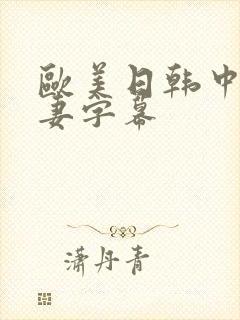 歐美日韩中
妻字幕
潇丹青